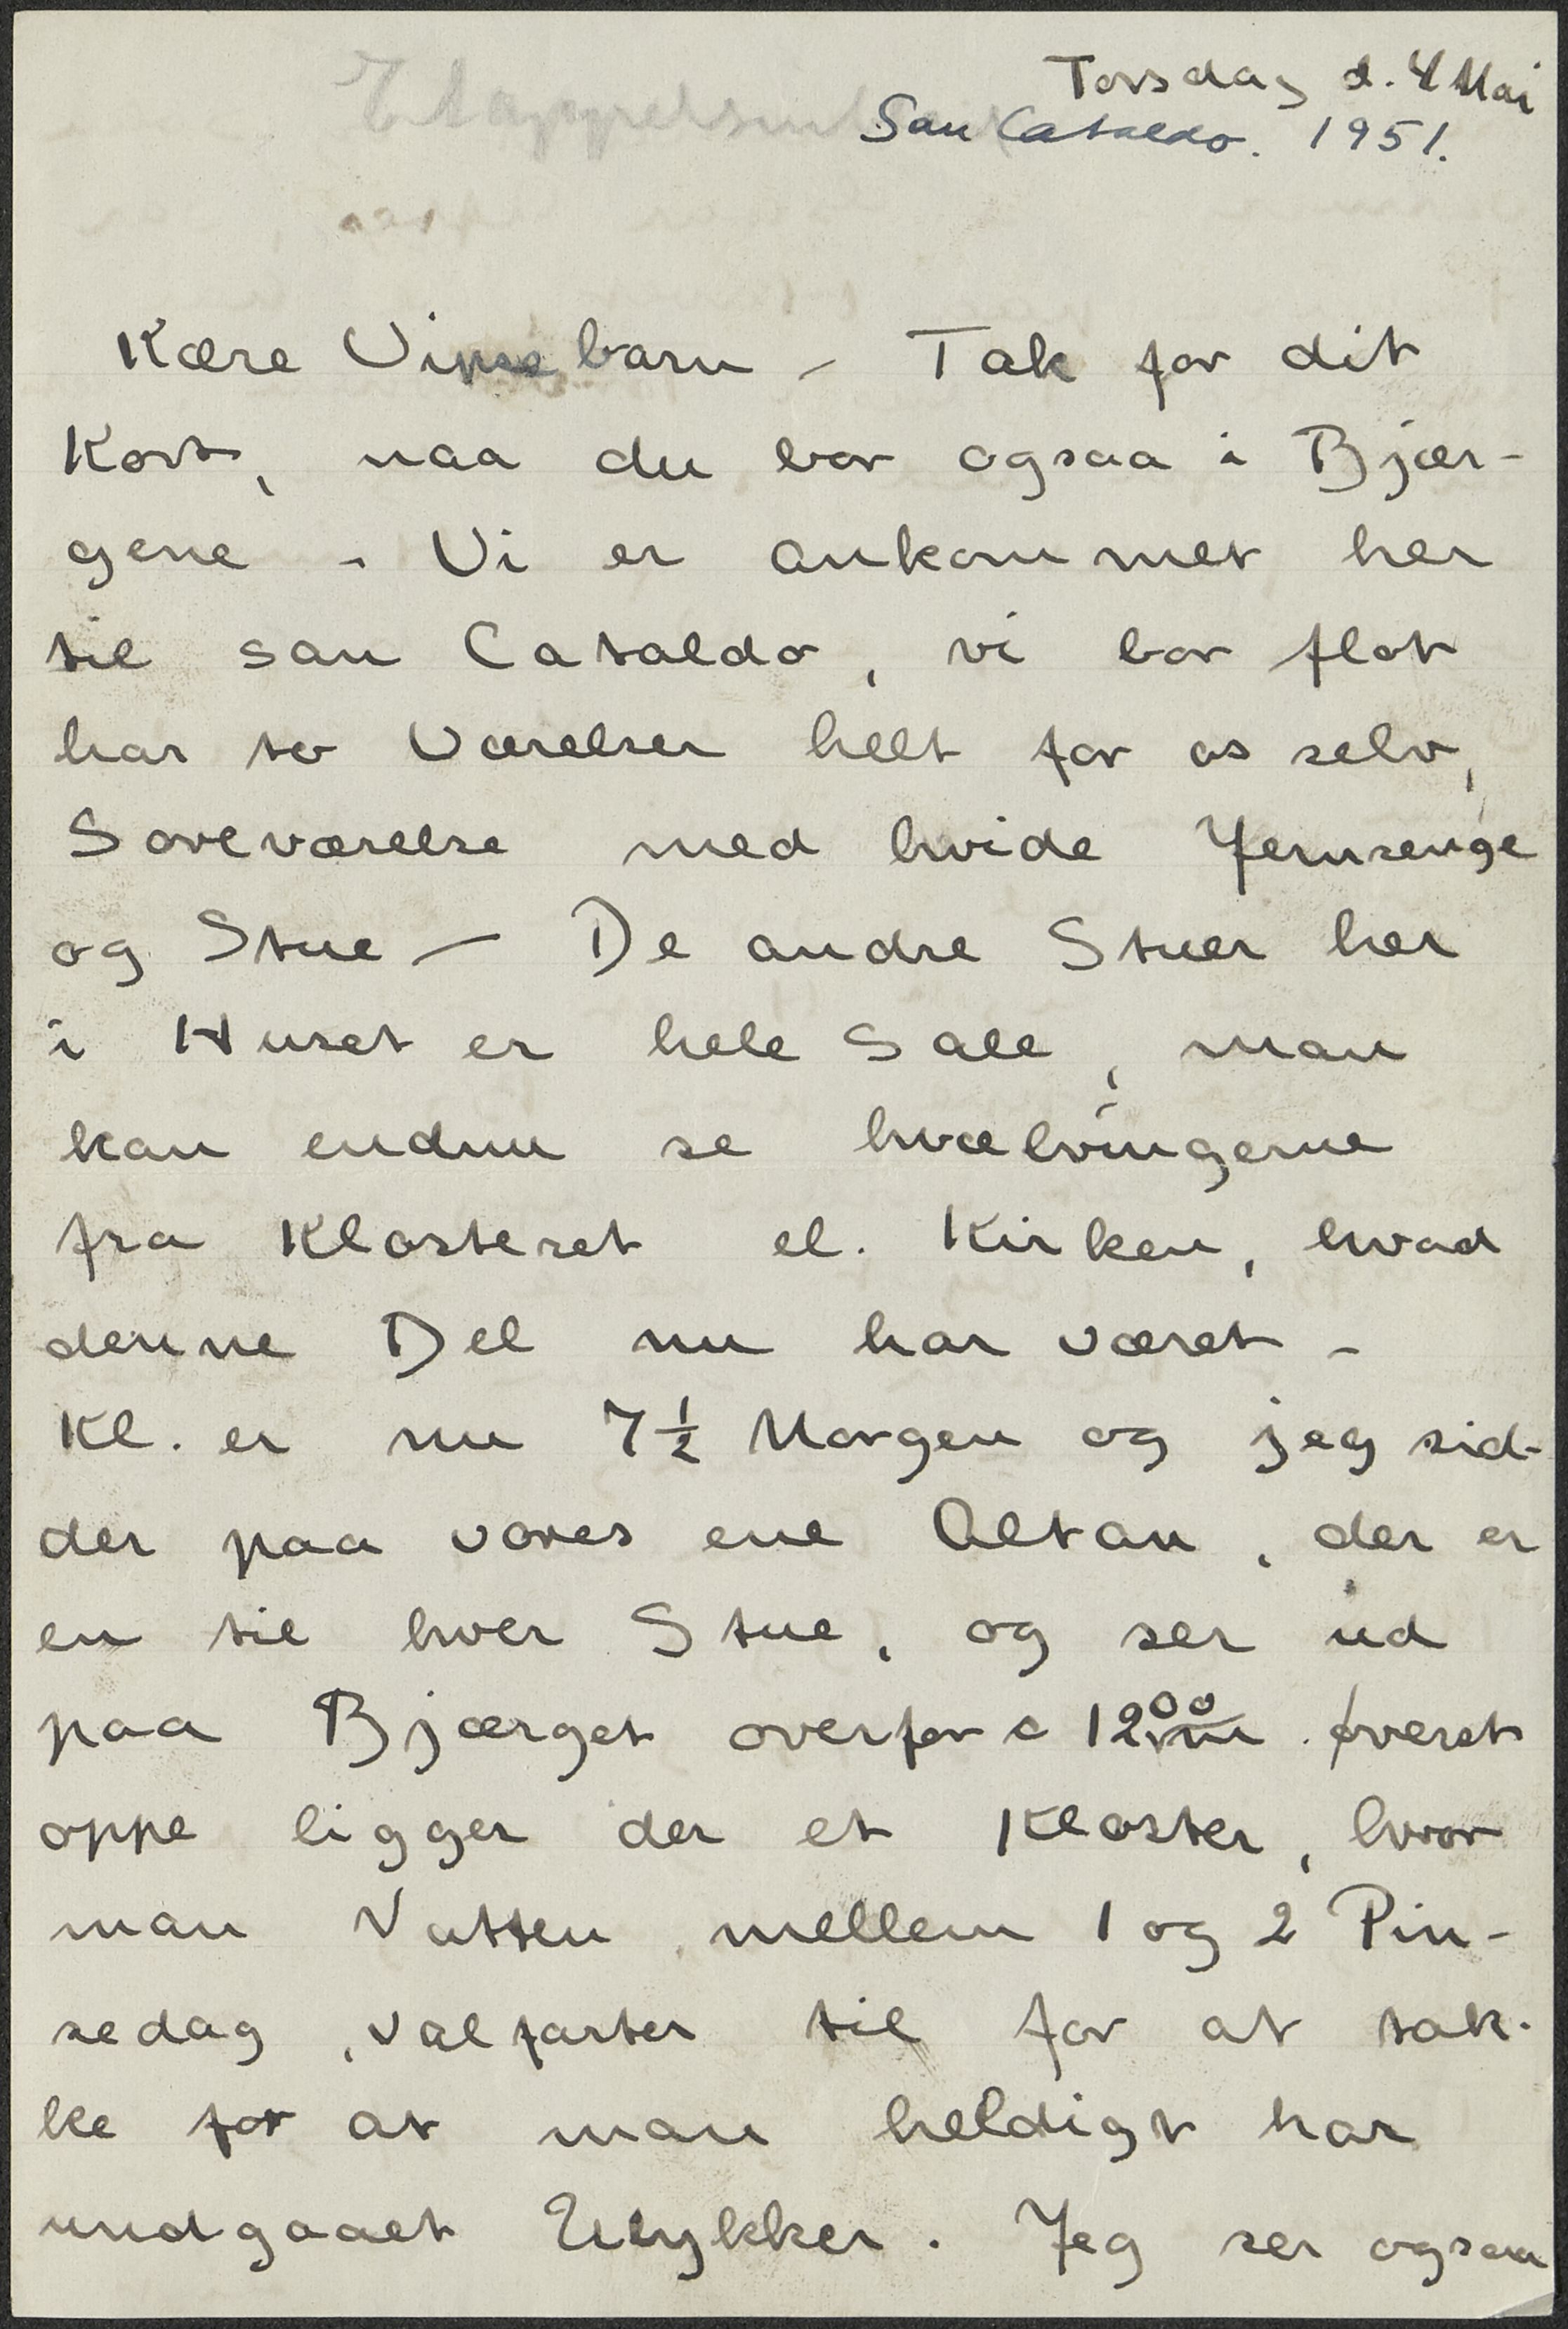 Torsdag d. 4 Mai
San Cataldo. 1951.
Kære Vipsebarn - Tak for dit
Kort, naa du bor ogsaa i Bjær-
gene - Vi er ankommet her
til san Cataldo, vi bor flot
har to Værelser helt for os selv,
Soveværelse med hvide Jernsenge
og Stue - De andre Stuer her
i Huset er hele Sale, man
kan endnu se hvælvingerne
fra Klosteret el. Kirken, hvad
denne Del nu har været -
Kl. er nu 7 ½ Morgen og jeg sid-
der paa vores ene Altan, der er
en til hver Stue, og ser ud
paa Bjærget overfor c 1200 m. øverst
oppe ligger der et Kloster, hvor
man Natten mellem 1 og 2 Pin-
sedag, valfarter til for at tak-
ke for at man heldigt har
undgaaet Ulykker. Jeg ser ogsaa